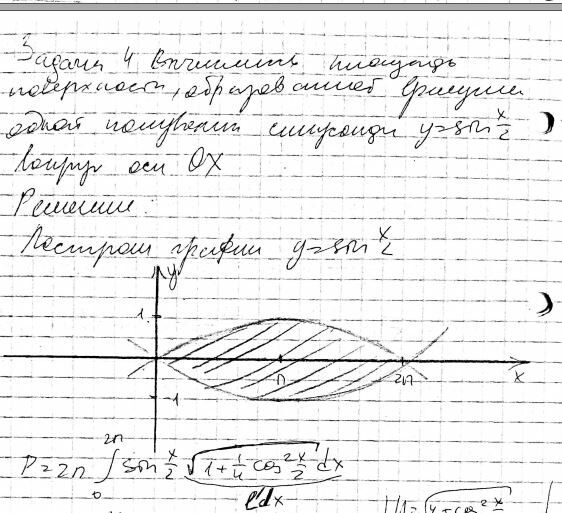 Задача 4 Вычислить площадь
поверхности, образованной вращением
одной полуволны синусоиды y=sin x/2
вокруг оси OX
Решение:
Построим график y=sin x/2
y
1
π
2π
x
-1
P=2π ∫₀^2π sin x/2 √(1+1/4 cos² x/2) dx
l'dx